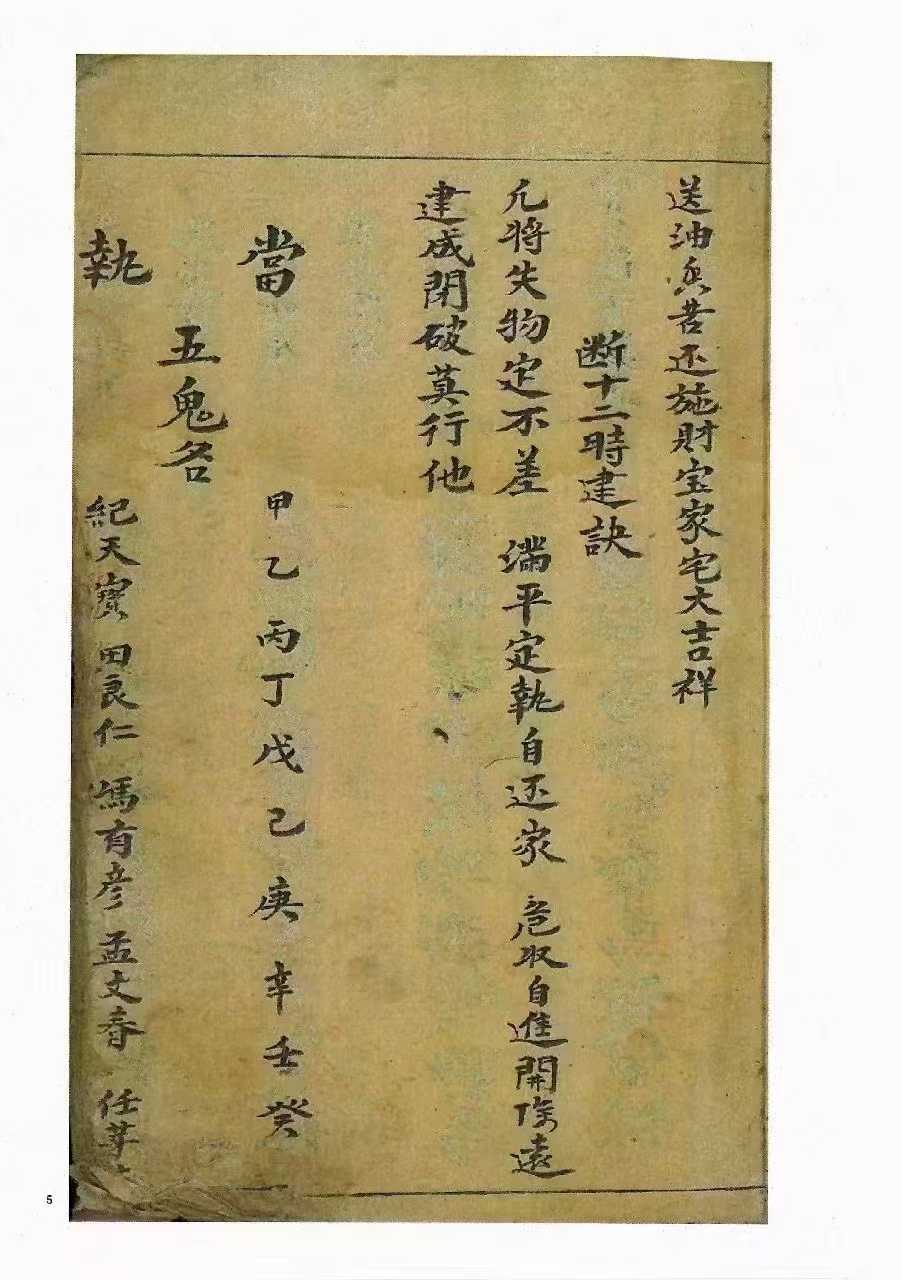 送油 还施財宝家宅大吉祥
断十二時建訣
凡将失物定不差 满平定執自还家 危収自進開除遠
建成閉破莫行他
當 甲乙丙丁戊己庚辛壬癸
五鬼名
執 紀天寳 田良仁 馮有彦 孟文春 任
5